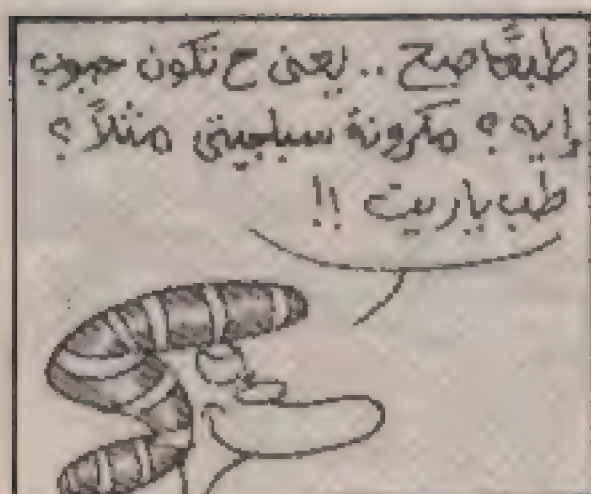 طبعًا صح .. يعنى ح تكون حبوب
إيه ؟ مكرونة سباجيتى مثلاً ؟
طب ياريت !!